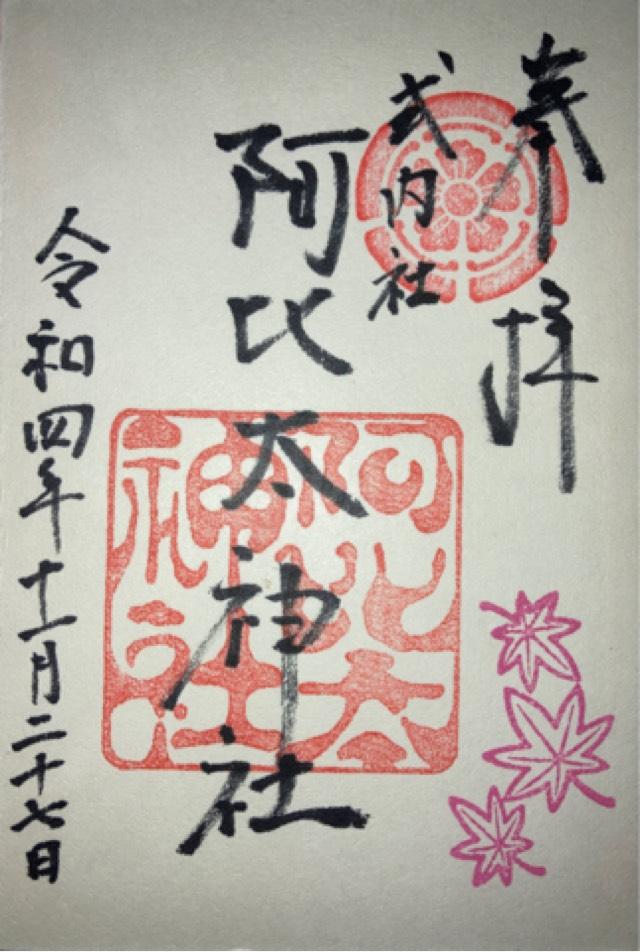 奉拝
式内社
阿比太神社
令和四年十一月二十七日
阿比太
神社